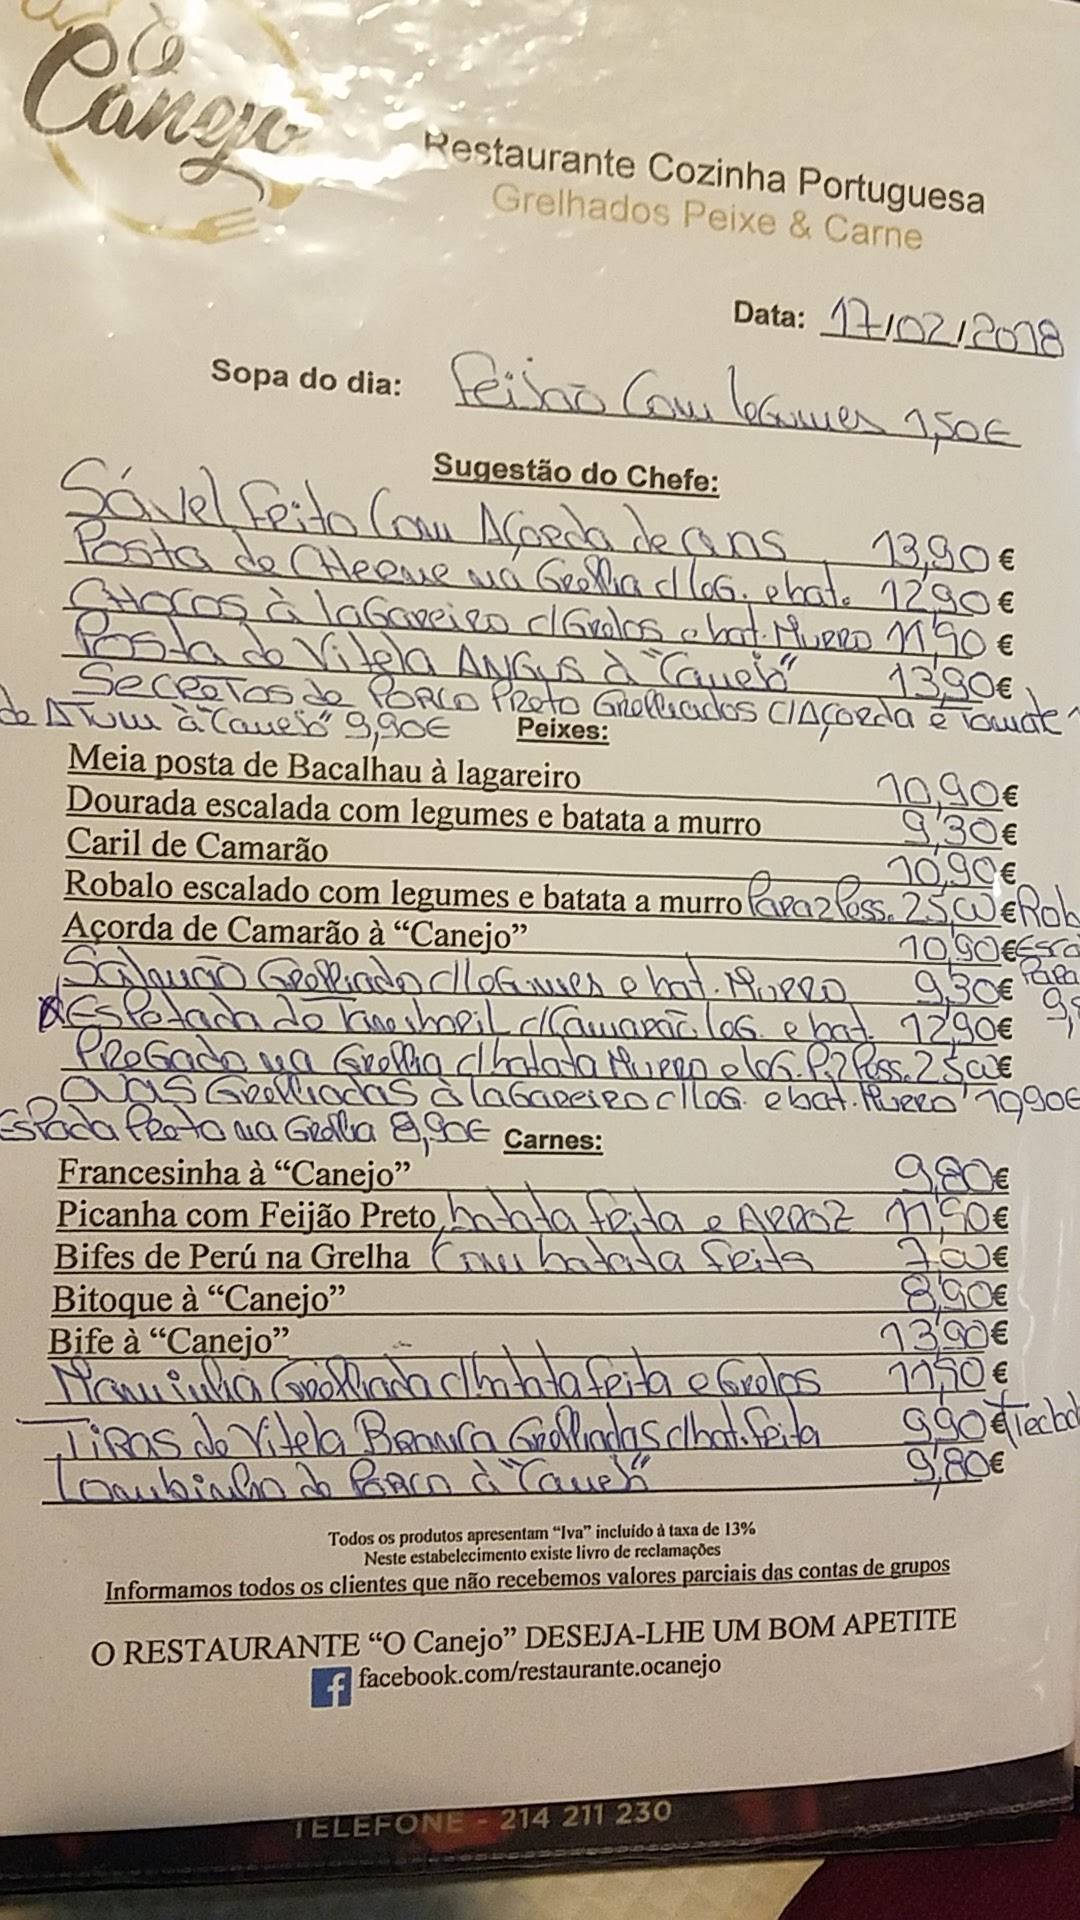 O Canejo
Restaurante Cozinha Portuguesa
Grelhados Peixe & Carne
Data: 17/02/2018
Sopa do dia: Feijão Com legumes 1,50€
Sugestão do Chefe:
Sável Frito Com Açorda de ovas 13,90€
Posta de Cherne na Grelha c/ leg. e bat. 12,90€
Chocos à lagareiro c/ Grelos e bat. Murro 11,90€
Posta de Vitela Angus à "Canejo" 13,90€
Secretos de Porco Preto Grelhados c/ Açorda e Tomate
de Atum à "Canejo" 9,90€
Peixes:
Meia posta de Bacalhau à lagareiro 10,90€
Dourada escalada com legumes e batata a murro 9,30€
Caril de Camarão 10,90€
Robalo escalado com legumes e batata a murro Para 2 Pess. 25,00€ Rob
Açorda de Camarão à “Canejo” 10,90€
Salmão Grelhado c/ legumes e bat. Murro 9,30€ Para
Espetada de Tamboril c/ Camarão leg. e bat. 12,90€
Pregado na Grelha c/ batata Murro e leg. P. 2 Pess. 25,00€
Ovas Grelhadas à lagareiro c/ leg. e bat. Murro 10,90€
Espada Preto na Grelha 8,90€
Carnes:
Francesinha à “Canejo” 9,80€
Picanha com Feijão Preto, batata frita e Arroz 11,50€
Bifes de Perú na Grelha Com batata frita 7,00€
Bitoque à “Canejo” 8,90€
Bife à “Canejo” 13,90€
Maminha Grelhada c/ batata frita e Grelos 11,50€
Tiras de Vitela Branca Grelhadas c/ bat. frita 9,90€
Lombinho de Porco à "Canejo" 9,80€
Todos os produtos apresentam “Iva” incluído à taxa de 13%
Neste estabelecimento existe livro de reclamações
Informamos todos os clientes que não recebemos valores parciais das contas de grupos
O RESTAURANTE “O Canejo” DESEJA-LHE UM BOM APETITE
f facebook.com/restaurante.ocanejo
TELEFONE - 214 211 230